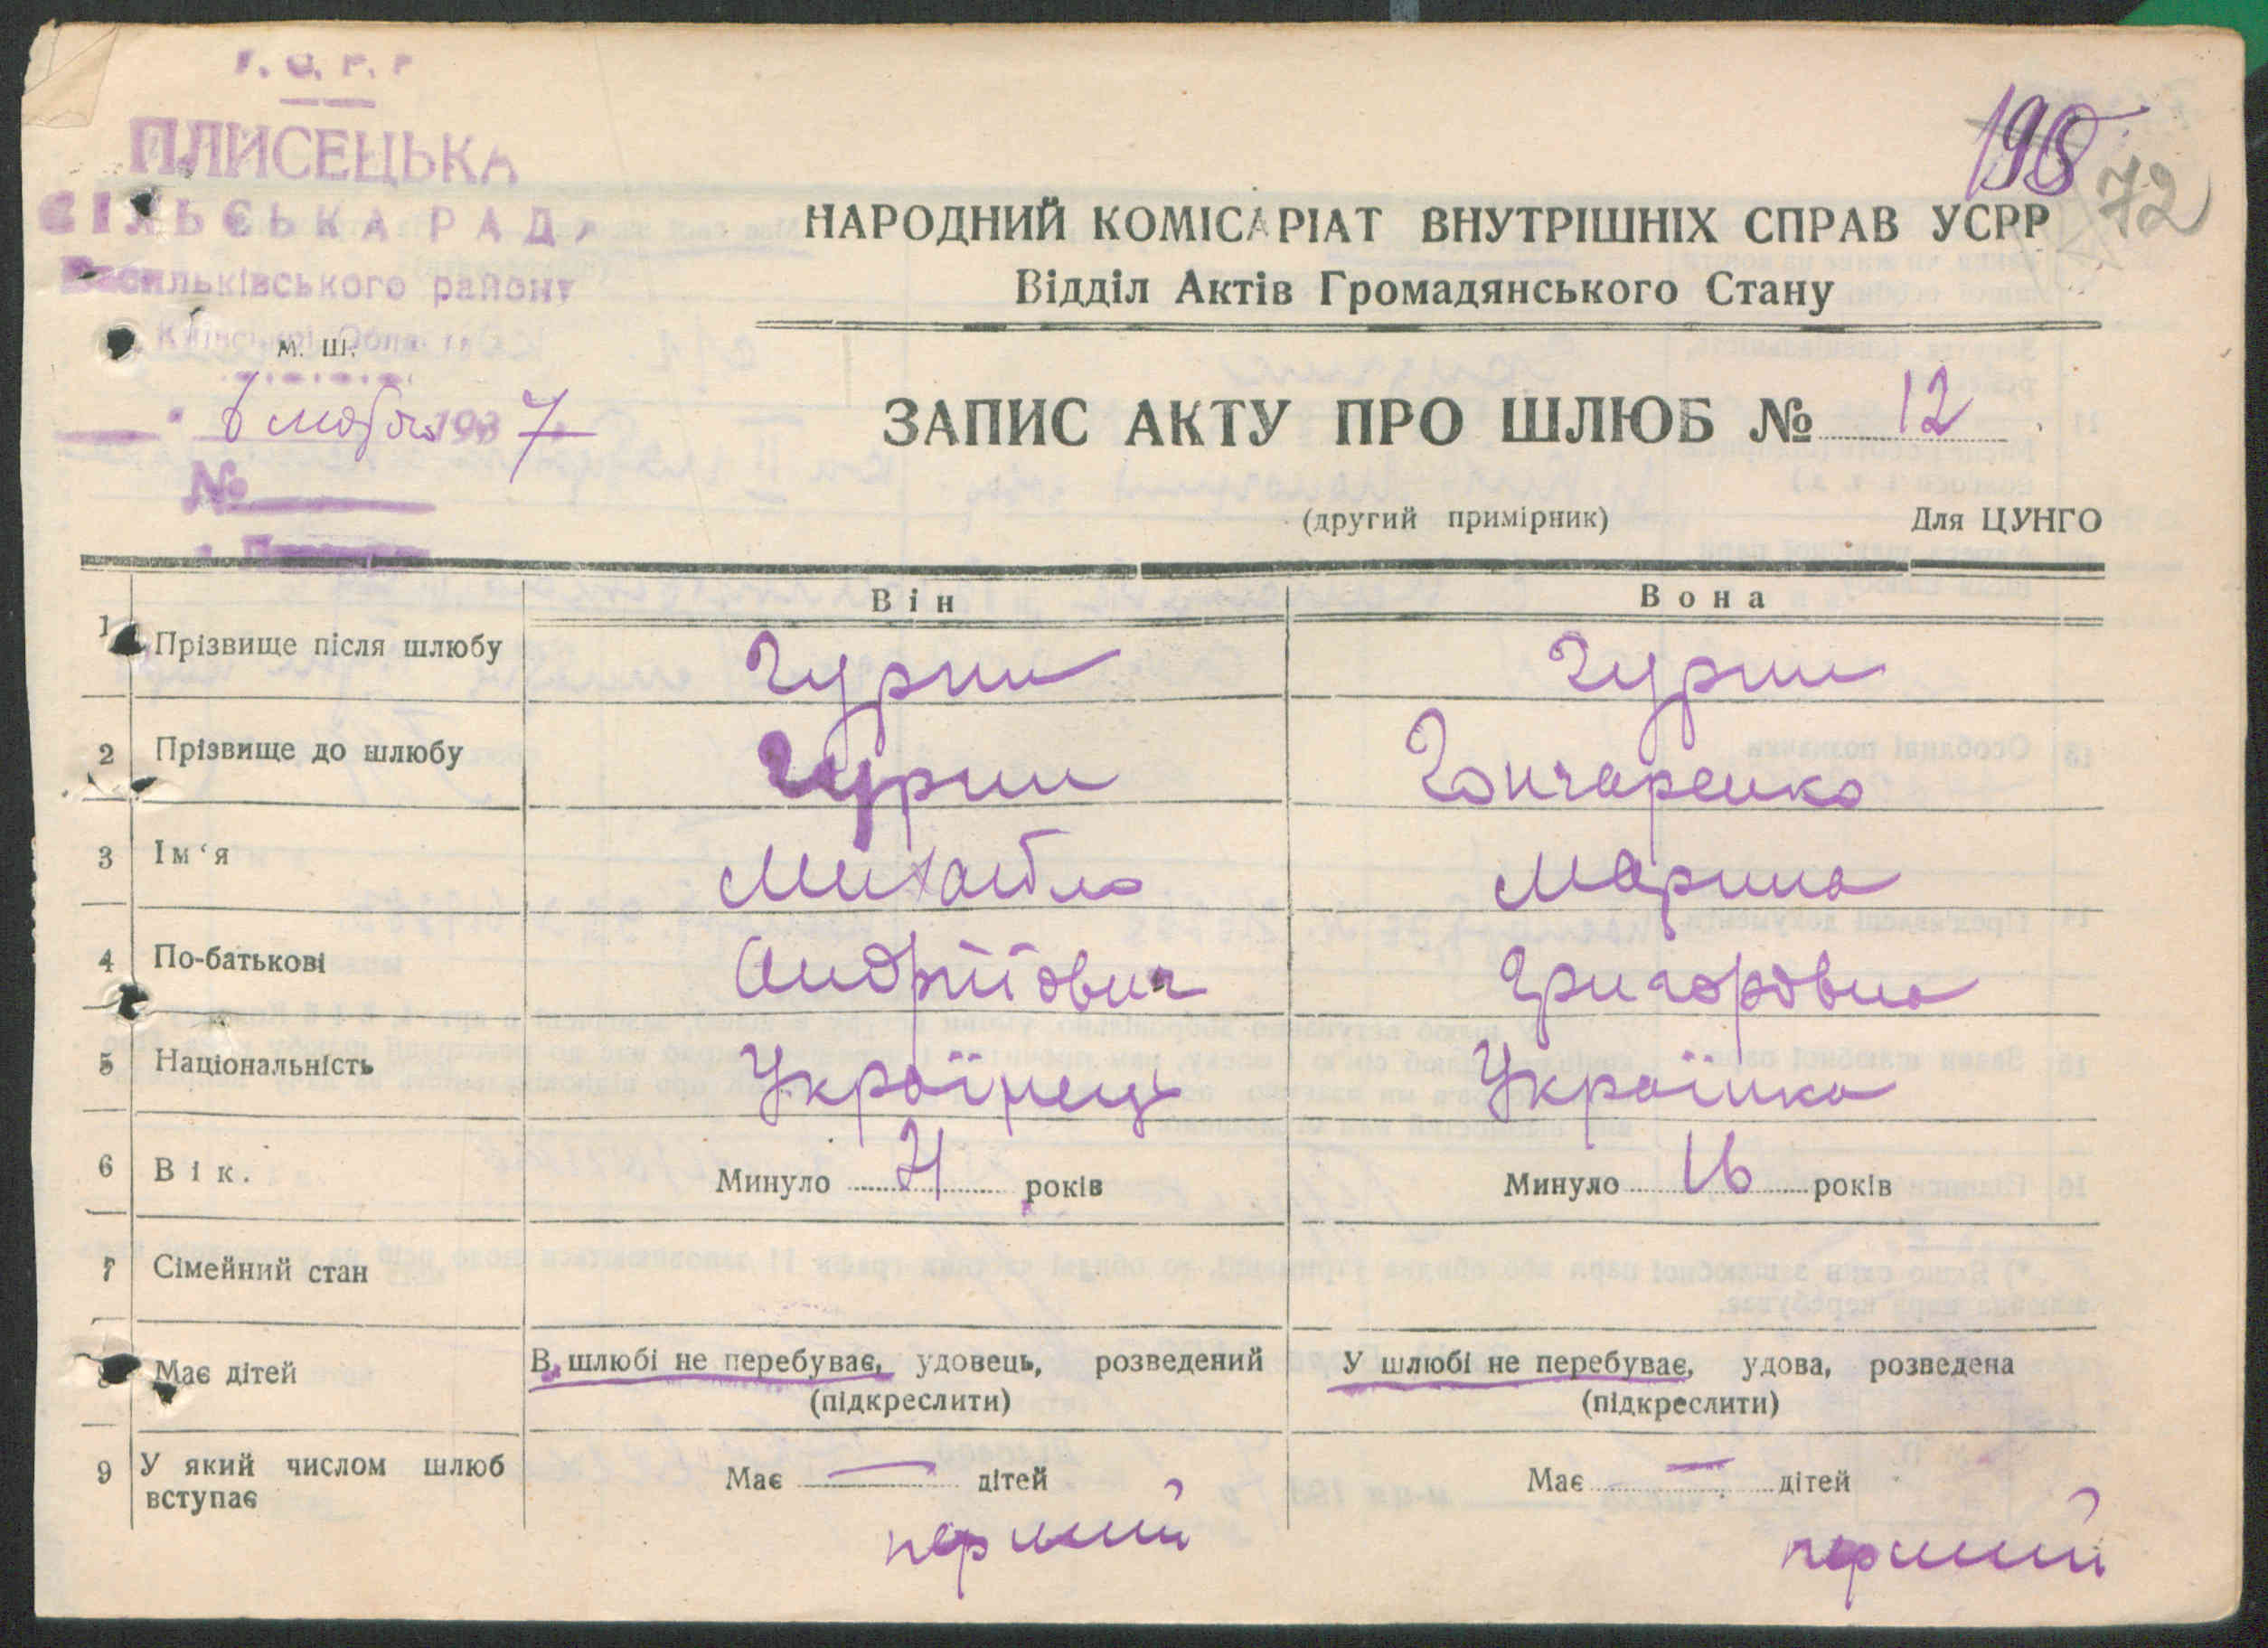 У. С. Р. Р
ПЛИСЕЦЬКА
СІЛЬСЬКА РАДА
Васильківського району
Київської Області
М. Ш.
6 лютого 1937
№
198
72
НАРОДНИЙ КОМІСАРІАТ ВНУТРІШНІХ СПРАВ УСРР
Відділ Актів Громадянського Стану
ЗАПИС АКТУ ПРО ШЛЮБ № 12
(другий примірник) Для ЦУНГО
Він Вона
1 Прізвище після шлюбу Гурин Гурин
2 Прізвище до шлюбу Гурин Гончаренко
3 Ім‘я Михайло Марина
4 По-батькові Андрійович Григоровна
5 Національність Українець Українка
6 Вік. Минуло 21 років Минуло 16 років
7 Сімейний стан
8 Має дітей В шлюбі не перебуває, удовець, розведений У шлюбі не перебуває, удова, розведена
(підкреслити) (підкреслити)
9 У який числом шлюб вступає Має — дітей Має — дітей
перший перший